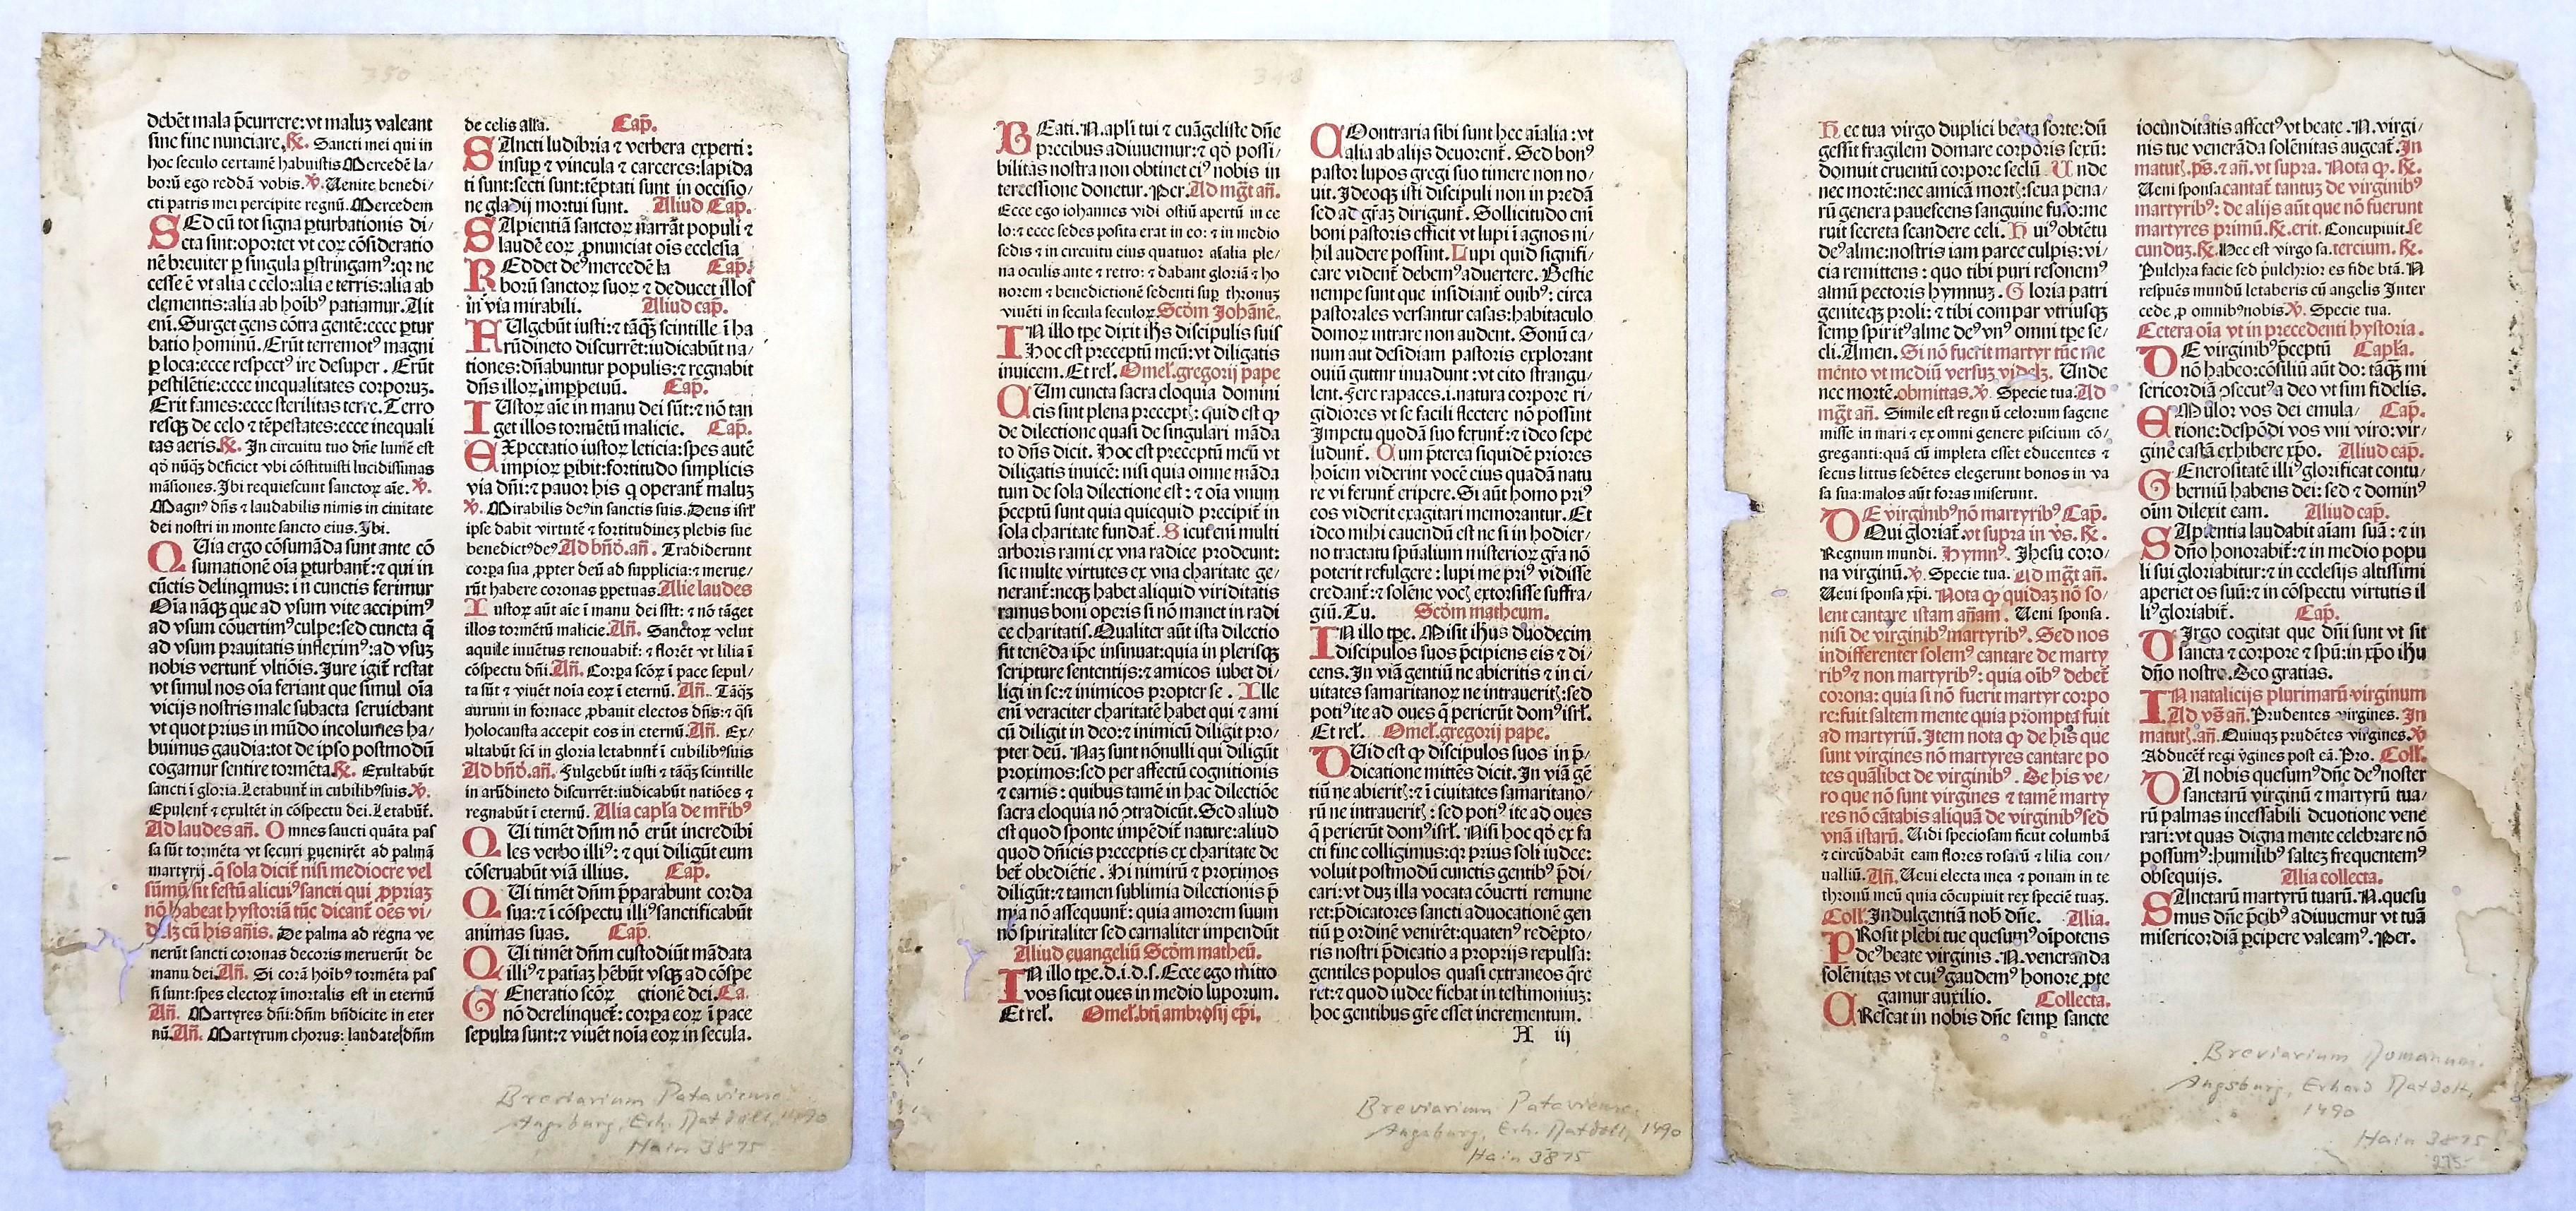 350
debēt mala p̄currere: vt maluȝ valeant
sine fine nunciare. ℟. Sancti mei qui in
hoc seculo certamē habuistis Mercedē la⸗
borū ego reddā vobis. ℣. Uenite benedi⸗
cti patris mei percipite regnū. Mercedem
SEd cū tot signa ꝑturbationis di⸗
cta sint: oportet vt eoꝝ cōsideratio
nē breuiter ꝑ singula ꝑstringamꝰ: qꝛ ne
cesse ē vt alia e celo: alia e terris: alia ab
elementis: alia ab hoībꝰ patiamur. Ait
eni. Surget gens cōtra gentē: ecce ꝑtur
batio hominū. Erūt terremotꝰ magni
ꝑ loca: ecce respectꝰ ire desuper. Erūt
pestilētie: ecce inequalitates corporuȝ.
Erit fames: ecce sterilitas terre. Terro
resqȝ de celo ⁊ tēpestates: ecce inequali
tas aeris. ℟. In circuitu tuo dn̄e lumē est
qḋ nūqȝ deficiet vbi cōstituisti lucidissimas
māsiones. Ibi requiescunt sanctoꝝ aīe. ℣.
Magnꝰ dn̄s ⁊ laudabilis nimis in ciuitate
dei nostri in monte sancto eius. Ibi.
QUia ergo cōsumāda sunt ante cō
sumationē oīa ꝑturbant̄: ⁊ qui in
cūctis delinqmus: in cunctis ferimur
Oīa nāqȝ que ad vsum vite accipimꝰ
ad vsum cōuertimꝰ culpe: sed cuncta q̄
ad vsum prauitatis inflexīmꝰ: ad vsuȝ
nobis vertunt̄ vltiōis. Jure igit̄ restat
vt simul nos oīa feriant que simul oīa
vicijs nostris male subacta seruiebant
vt quot prius in mūdo incolumes ha⸗
buimus gaudia: tot de ipso postmodū
cogamur sentire tormēta. ℟. Exultabūt
sancti ī gloria. Letabunt̄ in cubilibꝰ suis. ℣.
Epulent̄ ⁊ exultēt in cōspectu dei. Letabūt̄.
Ad laudes añ. Omnes sancti quāta pas
sa sūt tormēta vt securi ꝑuenirēt ad palmā
martyrij. q̄ sola dicit̄ nisi mediocre vel
sūmū sit festū alicuiꝰ sancti qui ꝓpriaȝ
nō habeat hystoriā tūc dicant̄ oēs vi⸗
delȝ cū his añis. De palma ad regna ve
nerūt sancti coronas decoris meruerūt de
manu dei. Añ. Si corā hoībꝰ tormēta pas
si sunt: spes electoꝝ īmortalis est in eternū
Añ. Martyres dn̄i: dn̄m bn̄dicite in eter
nū. Añ. Martyrum chorus: laudate dn̄m
de celis alla. Cap̄.
SAncti ludibria ⁊ verbera experti:
insuꝑ ⁊ vincula ⁊ carceres: lapida
ti sunt: secti sunt: tēptati sunt in occisio⸗
ne gladij mortui sunt. Aliud Cap̄.
SApientiā sanctoꝝ narrāt populi ⁊
laudē eoꝝ ꝓnunciat oīs ecclesia
REddet deꝰ mercedē la Cap̄.
borū sanctoꝝ suoꝝ ⁊ deducet illos
in via mirabili. Aliud cap̄.
FUlgebūt iusti: ⁊ tāqȝ scintille ī ha
rūdineto discurrēt: iudicabūt na⸗
tiones: dn̄abuntur populis: ⁊ regnabit
dn̄s illoꝝ imꝑpetuū. Cap̄.
IUstoꝝ aīe in manu dei sūt: ⁊ nō tan
get illos tormētū malicie. Cap̄.
EXpectatio iustoꝝ leticia: spes autē
impioꝝ ꝑibit: fortitudo simplicis
via dn̄i: ⁊ pauor his q̄ operant̄ maluȝ
℣. Mirabilis deꝰ in sanctis suis. Deus isrl̄
ipse dabit virtutē ⁊ fortitudineȝ plebis sue
benedictꝰ deꝰ. Ad bn̄d. añ. Tradiderunt
corpa sua ꝓpter deū ad supplicia: ⁊ merue⸗
rūt habere coronas ꝑpetuas. Alie laudes
Iustoꝝ aūt aīe ī manu dei sūt: ⁊ nō tāget
illos tormētū malicie. Añ. Sanctoꝝ velut
aquile iuuētus renouabit̄: ⁊ florēt vt lilia ī
cōspectu dn̄i. Añ. Corpa scōꝝ ī pace sepul⸗
ta sūt ⁊ viuēt noīa eoꝝ ī eternū. Añ. Tāqȝ
aurum in fornace ꝓbauit electos dn̄s: ⁊ q̄si
holocausta accepit eos in eternū. Añ. Ex⸗
ultabūt sci in gloria letabunt̄ ī cubilibꝰ suis
Ad bn̄d. añ. Fulgebūt iusti ⁊ tāqȝ scintille
in arūdineto discurrēt: iudicabūt natiōes ⁊
regnabūt ī eternū. Alia capl̄a de mr̄ibꝰ
QUi timēt dn̄m nō erūt incredibi
les verbo illiꝰ: ⁊ qui diligūt eum
cōseruabūt viā illius. Cap̄.
QUi timēt dn̄m p̄parabunt corda
sua: ⁊ ī cōspectu illiꝰ sanctificabūt
animas suas. Cap̄.
QUi timēt dn̄m custodiūt mādata
illiꝰ ⁊ patiaȝ hēbūt vsqȝ ad cōspe
GEneratio scōꝝ ctionē dei. Ca.
nō derelinquet̄: corpa eoꝝ ī pace
sepulta sunt: ⁊ viuēt noīa eoꝝ in secula.
Breviarium Pataviense.
Augsburg, Erh. Ratdolt, 1490
Hain 3875
BEati. N. apl̄i tui ⁊ euāgeliste dn̄e
precibus adiuuemur: ⁊ qḋ possi⸗
bilitas nostra non obtinet eiꝰ nobis in
tercessione donetur. Per. Ad mg̃t añ.
Ecce ego iohannes vidi ostiū apertū in ce
lo: ⁊ ecce sedes posita erat in eo: ⁊ in medio
sedis ⁊ in circuitu eius quatuor aīalia ple⸗
na oculis ante ⁊ retro: ⁊ dabant gloriā ⁊ ho
norem ⁊ benedictionē sedenti suꝑ thronuȝ
viuēti in secula seculoꝝ. Scd̄m Johānē.
IN illo tꝑe dixit ih̄s discipulis suis
Hoc est preceptū meū: vt diligatis
inuicem. Et rel̄. Omel̄. gregorij pape
CUm cuncta sacra eloquia domini
cis sint plena preceptꝭ: quid est ꝙ
de dilectione quasi de singulari māda
to dn̄s dicit. Hoc est preceptū meū vt
diligatis inuicē: nisi quia omne māda
tum de sola dilectione est: ⁊ oīa vnum
p̄ceptū sunt quia quicquid precipit̄ in
sola charitate fundat̄. Sicut eni multi
arboris rami ex vna radice prodeunt:
sic multe virtutes ex vna charitate ge⸗
nerant̄: necqȝ habet aliquid viriditatis
ramus boni operis si nō manet in radi
ce charitatis. Qualiter aūt ista dilectio
sit tenēda ip̄e insinuat: quia in plerisqȝ
scripture sententijs: ⁊ amicos iubet di⸗
ligi in se: ⁊ inimicos propter se. Ille
eni veraciter charitatē habet qui ⁊ ami
cū diligit in deo: ⁊ inimicū diligit pro⸗
pter deū. Naȝ sunt nōnulli qui diligūt
proximos: sed per affectū cognitionis
⁊ carnis: quibus tamē in hac dilectiōe
sacra eloquia nō ꝯtradicūt. Sed aliud
est quod sponte impēdit̄ nature: aliud
quod dn̄icis preceptis ex charitate de
bet̄ obediētie. Hi nimirū ⁊ proximos
diligūt: ⁊ tamen sublimia dilectionis p̄
mia nō assequunt̄: quia amorem suum
nō spiritaliter sed carnaliter impendūt
Aliud euangeliū Scd̄m matheū.
IN illo tꝑe. d. i. d. s. Ecce ego mitto
vos sicut oues in medio luporum.
Et rel̄. Omel̄. bt̄i ambrosij ep̄i.
COntraria sibi sunt hec aīalia: vt
alia ab alijs deuorent̄. Sed bonꝰ
pastor lupos gregi suo timere non no⸗
uit. Ideoqȝ isti discipuli non in predā
sed ad gr̄aȝ dirigunt̄. Sollicitudo eni
boni pastoris efficit vt lupi ī agnos ni⸗
hil audere possint. Lupi quid signifi⸗
care vident̄ debemꝰ aduertere. Bestie
nempe sunt que insidiant̄ ouibꝰ: circa
pastorales versantur casas: habitaculo
domoꝝ intrare non audent. Sonū ca⸗
num aut desidiam pastoris explorant
ouiū guttur inuadunt: vt cito strangu⸗
lent. Fere rapaces. i. natura corpore ri⸗
gidiores vt se facili flectere nō possint
Impetu quodā suo ferunt̄: ⁊ ideo sepe
ludunt̄. Cum p̄terea siquidē priores
hoīem viderint vocē eius quadā natu
re vi ferunt̄ eripere. Si aūt homo priꝰ
eos viderit exagitari memorantur. Et
ideo mihi cauendū est ne si in hodier⸗
no tractatu spūalium misterioꝝ gr̄a nō
poterit refulgere: lupi me priꝰ vidisse
credant̄: ⁊ solēne vocꝭ extorsisse suffra⸗
giū. Tu. Scd̄m matheum.
IN illo tꝑe. Misit ih̄us duodecim
discipulos suos p̄cipiens eis ⁊ di⸗
cens. In viā gentiū ne abieritis ⁊ in ci⸗
uitates samaritanoꝝ ne intraueritꝭ: sed
potiꝰ ite ad oues q̄ perierūt domꝰ isrl̄.
Et rel̄. Omel̄. gregorij pape.
QUid est ꝙ discipulos suos in p̄⸗
dicatione mittēs dicit. In viā gē
tiū ne abieritꝭ: ⁊ ī ciuitates samaritano⸗
rū ne intraueritꝭ: sed potiꝰ ite ad oues
q̄ perierūt domꝰ isrl̄. Nisi hoc qḋ ex fa
cti fine colligimus: qꝛ prius soli iudee:
voluit postmodū cunctis gentibꝰ p̄di⸗
cari: vt duȝ illa vocata cōuerti remune
ret: p̄dicatores sancti aduocationē gen
tiū ꝑ ordinē venirēt: quatenꝰ redēpto⸗
ris nostri p̄dicatio a proprijs repulsa:
gentiles populos quasi extraneos q̄re
ret: ⁊ quod iudee fiebat in testimoniuȝ:
hoc gentibus gr̄e esset incrementum.
A iij
Breviarium Pataviense.
Augsburg, Erh. Ratdolt, 1490
Hain 3875
Hec tua virgo duplici beata sorte: dū
gessit fragilem domare corporis sexū:
domuit cruentū corpore seclū Unde
nec mortē: nec amicā mortꝭ: seua pena⸗
rū genera pauescens sanguine fuso: me
ruit secreta scandere celi. Huiꝰ obtētu
deꝰ alme: nostris iam parce culpis: vi⸗
cia remittens: quo tibi puri resonemꝰ
almū pectoris hymnuȝ. Gloria patri
geniteqȝ proli: ⁊ tibi compar vtriusqȝ
semꝑ spiritꝰ alme deꝰ vnꝰ omni tꝑe se⸗
cli. Amen. Si nō fuerit martyr tūc me
mento vt mediū versuȝ videlȝ. Unde
nec mortē. obmittas. ℣. Specie tua. Ad
mg̃t añ. Simile est regnū celorum sagene
misse in mari ⁊ ex omni genere piscium cō⸗
greganti: quā cū impleta esset educentes ⁊
secus littus sedētes elegerunt bonos in va
sa sua: malos aūt foras miserunt.
DE virginibꝰ nō martyribꝰ Cap̄.
Qui gloriat̄. vt supra in v̄s. ℟.
Regnum mundi. Hymnꝰ. Jhesu coro⸗
na virginū. ℣. Specie tua. Ad mg̃t añ.
Ueni sponsa xp̄i. Nota ꝙ quidaȝ nō so⸗
lent cantare istam añam. Ueni sponsa.
nisi de virginibꝰ martyribꝰ. Sed nos
indifferenter solemꝰ cantare de marty
ribꝰ ⁊ non martyribꝰ: quia oībꝰ debet̄
corona: quia si nō fuerit martyr corpo
re: fuit saltem mente quia prompta fuit
ad martyriū. Item nota ꝙ de his que
sunt virgines nō martyres cantare po
tes quālibet de virginibꝰ. De his ve⸗
ro que nō sunt virgines ⁊ tamē marty
res nō cātabis aliquā de virginibꝰ sed
vnā istarū. Uidi speciosam sicut columbā
⁊ circūdabāt eam flores rosarū ⁊ lilia con⸗
ualliū. Añ. Ueni electa mea ⁊ ponam in te
thronū meū quia cōcupiuit rex speciē tuaȝ.
Coll̄. Indulgentiā nob̄ dn̄e. Alia.
PRosit plebi tue quesumꝰ oīpotens
deꝰ beate virginis. N. veneranda
solēnitas vt cuiꝰ gaudemꝰ honore ꝓte
gamur auxilio. Collecta.
CRescat in nobis dn̄e semꝑ sancte
iocunditatis affectꝰ vt beate. N. virgi⸗
nis tue venerāda solēnitas augeat̄. In
matutꝭ. ps̄. ⁊ añ. vt supra. Nota ꝙ. ℟.
Ueni sponsa cantat̄ tantuȝ de virginibꝰ
martyribꝰ: de alijs aūt que nō fuerunt
martyres primū. ℟. erit. Concupiuit. se
cunduȝ. ℟. Hec est virgo sa. tercium. ℟.
Pulchra facie sed pulchrior es fide btā. N
respuēs mundū letaberis cū angelis Inter
cede ꝓ omnibꝰ nobis ℣. Specie tua.
Cetera oīa vt in precedenti hystoria.
DE virginibꝰ p̄ceptū Capl̄a.
nō habeo: cōsiliū aūt do: tāqȝ mi
sericordiā ꝯsecutꝰ a deo vt sim fidelis.
EMulor vos dei emula⸗ Cap̄.
tione: despōdi vos vni viro: vir⸗
ginē castā exhibere xp̄o. Aliud cap̄.
GEnerositatē illiꝰ glorificat contu⸗
berniū habens dei: sed ⁊ dominꝰ
oīm dilexit eam. Aliud cap̄.
SApientia laudabit aīam suā: ⁊ in
dn̄o honorabit̄: ⁊ in medio popu
li sui gloriabitur: ⁊ in ecclesijs altissimi
aperiet os suū: ⁊ in cōspectu virtutis il
liꝰ gloriabit̄. Cap̄.
UIrgo cogitat que dn̄i sunt vt sit
sancta ⁊ corpore ⁊ spū: in xp̄o ih̄u
dn̄o nostro. Deo gratias.
IN natalicijs plurimarū virginum
Ad v̄s añ. Prudentes virgines. In
matutꝭ. añ. Quinqȝ prudētes virgines. ℣
Adducēt̄ regi v̄gines post eā. Pro. Coll̄.
DA nobis quesumꝰ dn̄e deꝰ noster
sanctarū virginū ⁊ martyrū tua⸗
rū palmas incessabili deuotione vene
rari: vt quas digna mente celebrare nō
possumꝰ: humilibꝰ salteȝ frequentemꝰ
obsequijs. Alia collecta.
SAnctarū martyrū tuarū. N. quesu
mus dn̄e p̄cibꝰ adiuuemur vt tuā
misericordiā ꝑcipere valeamꝰ. Per.
Breviarium Romanum.
Augsburg, Erhard Ratdolt,
1490
Hain 3875
275-